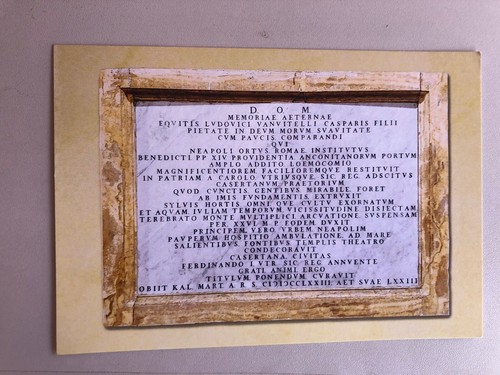 D. O. M.
MEMORIAE AETERNAE
EQVITIS LVDOVICI VANVITELLI CASPARIS FILII
PIETATE IN DEVM MORVM SVAVITATE
CVM PAVCIS COMPARANDI
QVI
NEAPOLI ORTVS ROMAE INSTITVTVS
BENEDICTI PP XIV PROVIDENTIA ANCONITANORVM PORTVM
AMPLO ADDITO LOEMOCOMIO
MAGNIFICENTIOREM FACILIOREMQVE RESTITVIT
IN PATRIAM A CAROLO VTRIVSQVE SIC REG ADSCITVS
CASERTANVM PRAETORIVM
QVOD CVNCTIS GENTIBVS MIRABILE FORET
AB IMIS FVNDAMENTIS EXTRVXIT
SYLVIS HORTIS OMNI QVE CVLTV EXORNATVM
ET AQVAM IVLIAM TEMPORVM VICISSITVDINE DISIECTAM
TEREBRATO MONTE MVLTIPLICI ARCVATIONE SVSPENSAM
PER XXVI M P FODEM DVXIT
PRINCIPEM VERO VRBEM NEAPOLIM
PAVPERVM HOSPITIO AMBVLATIONE AD MARE
SALIENTIBVS FONTIBVS TEMPLIS THEATRO
CONDECORAVIT
CASERTANA CIVITAS
FERDINANDO I VTR SIC REG ANNVENTE
GRATI ANIMI ERGO
TITVLVM PONENDVM CVRAVIT
OBIIT KAL MART A R S CIƆIƆCCLXXIII AET SVAE LXXIII